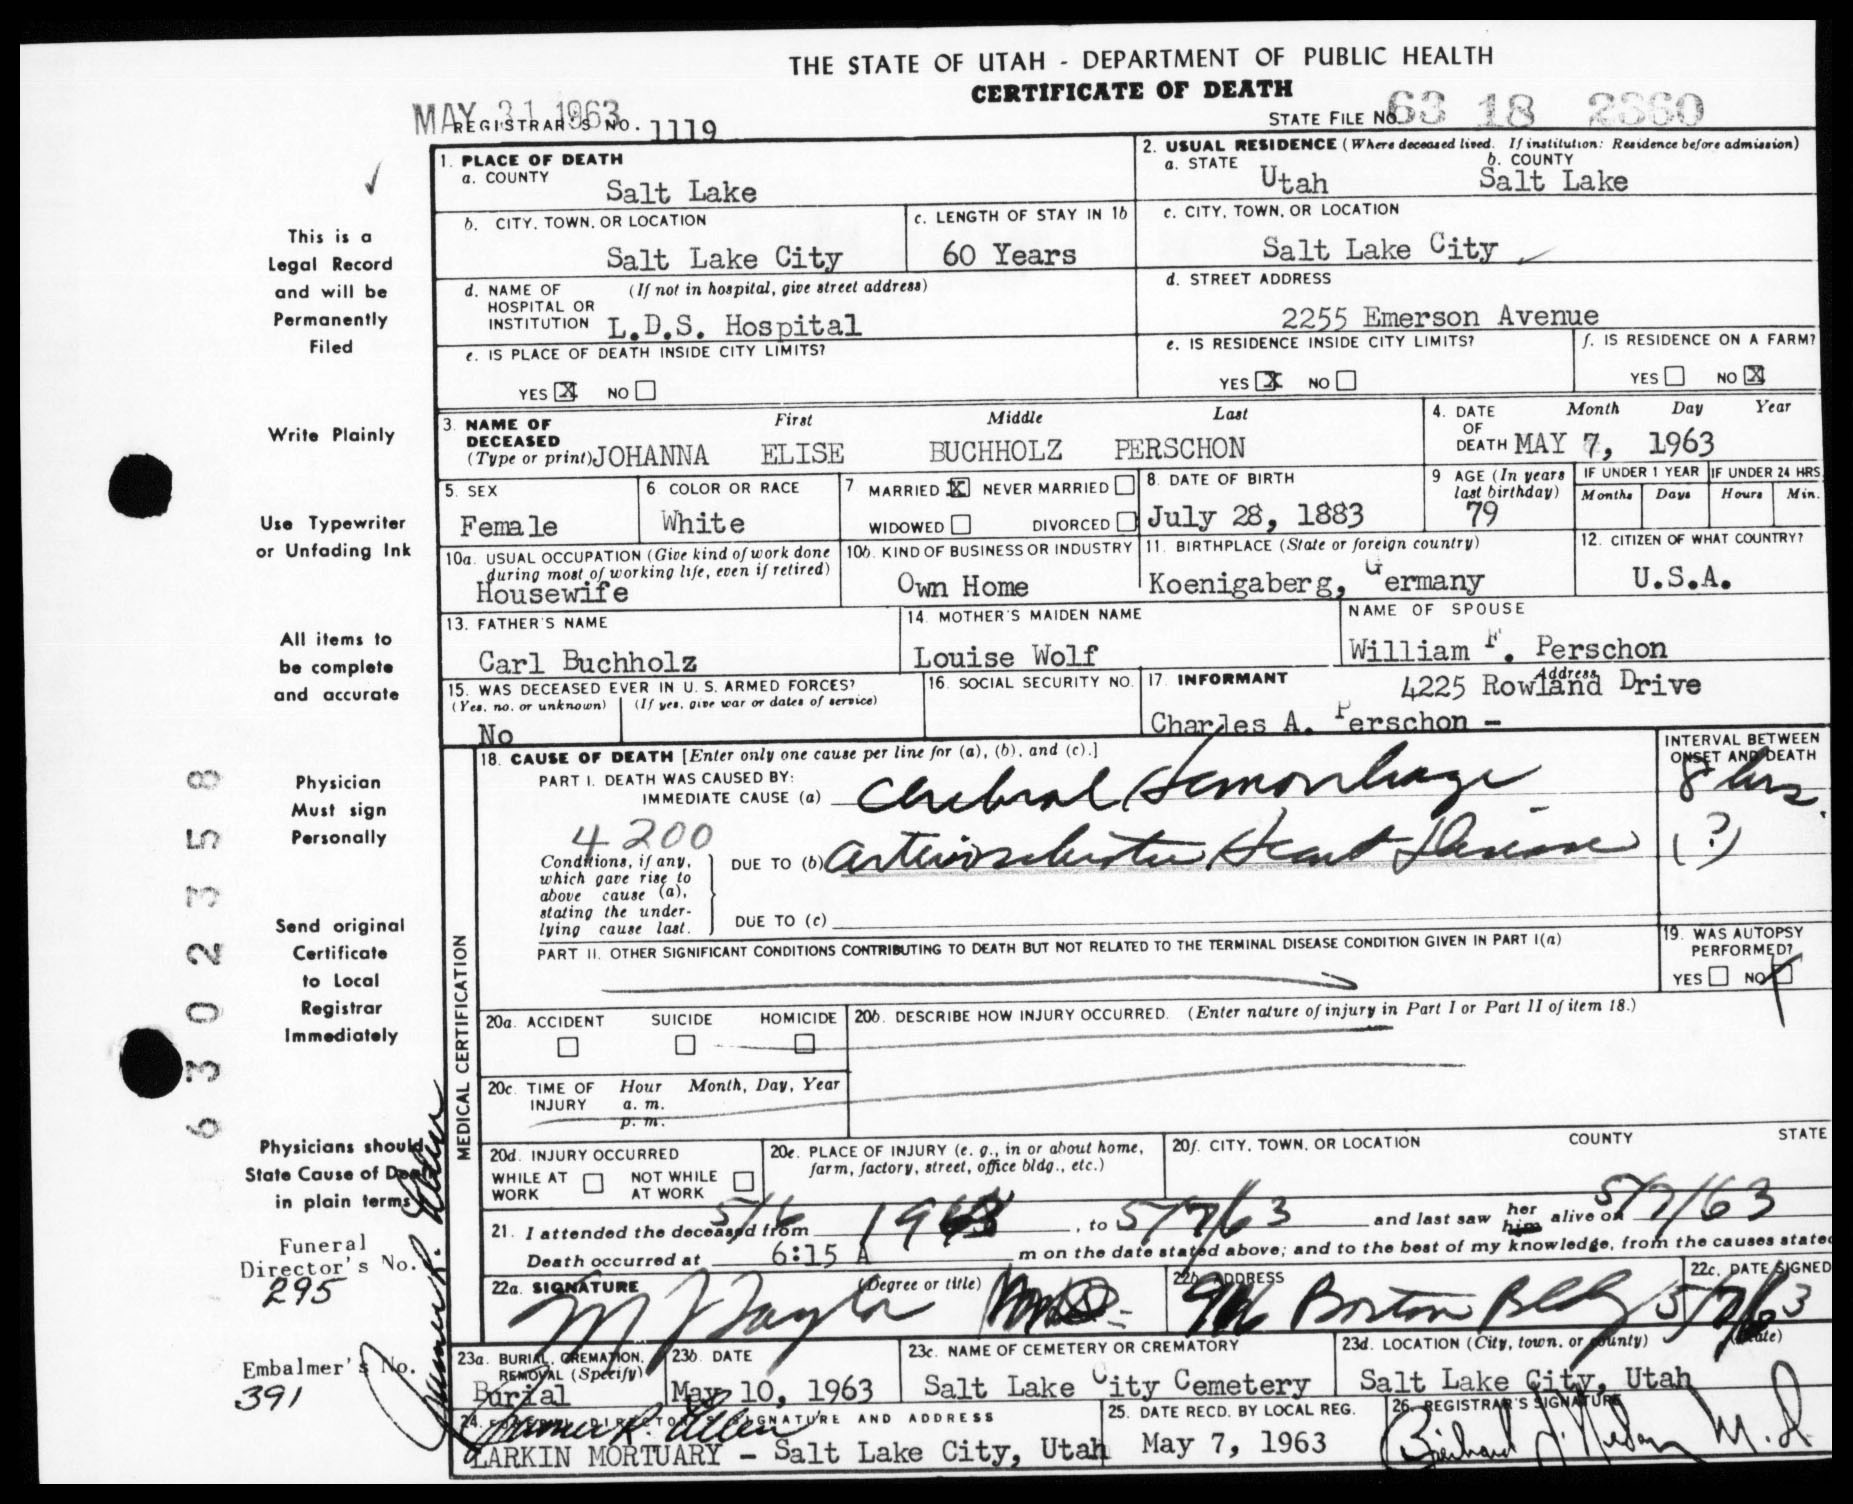 THE STATE OF UTAH - DEPARTMENT OF PUBLIC HEALTH
CERTIFICATE OF DEATH
MAY 31 1963
REGISTRAR'S NO. 1119
STATE FILE NO. 63 18 2360
This is a
Legal Record
and will be
Permanently
Filed
Write Plainly
Use Typewriter
or Unfading Ink
All items to
be complete
and accurate
Physician
Must sign
Personally
Send original
Certificate
to Local
Registrar
Immediately
Physicians should
State Cause of Death
in plain terms
Funeral
Director's No.
295
Embalmer's No.
391
6302358
1. PLACE OF DEATH
a. COUNTY
Salt Lake
2. USUAL RESIDENCE (Where deceased lived. If institution: Residence before admission)
a. STATE
Utah
b. COUNTY
Salt Lake
b. CITY, TOWN, OR LOCATION
Salt Lake City
c. LENGTH OF STAY IN 1b
60 Years
c. CITY, TOWN, OR LOCATION
Salt Lake City
d. NAME OF HOSPITAL OR INSTITUTION (If not in hospital, give street address)
L.D.S. Hospital
d. STREET ADDRESS
2255 Emerson Avenue
e. IS PLACE OF DEATH INSIDE CITY LIMITS?
YES X NO
e. IS RESIDENCE INSIDE CITY LIMITS?
YES X NO
f. IS RESIDENCE ON A FARM?
YES NO X
3. NAME OF DECEASED (Type or print)
First Middle Last
JOHANNA ELISE BUCHHOLZ PERSCHON
4. DATE OF DEATH
Month Day Year
MAY 7, 1963
5. SEX
Female
6. COLOR OR RACE
White
7 MARRIED X NEVER MARRIED
WIDOWED DIVORCED
8. DATE OF BIRTH
July 28, 1883
9 AGE (In years last birthday)
79
IF UNDER 1 YEAR
Months Days
IF UNDER 24 HRS
Hours Min.
10a. USUAL OCCUPATION (Give kind of work done during most of working life, even if retired)
Housewife
10b. KIND OF BUSINESS OR INDUSTRY
Own Home
11. BIRTHPLACE (State or foreign country)
Koenigaberg, Germany
12. CITIZEN OF WHAT COUNTRY?
U.S.A.
13. FATHER'S NAME
Carl Buchholz
14. MOTHER'S MAIDEN NAME
Louise Wolf
NAME OF SPOUSE
William F. Perschon
15. WAS DECEASED EVER IN U. S. ARMED FORCES?
(Yes, no, or unknown) (If yes, give war or dates of service)
No
16. SOCIAL SECURITY NO.
17. INFORMANT
Address
4225 Rowland Drive
Charles A. Perschon -
MEDICAL CERTIFICATION
18. CAUSE OF DEATH [Enter only one cause per line for (a), (b), and (c).]
INTERVAL BETWEEN ONSET AND DEATH
PART I. DEATH WAS CAUSED BY:
IMMEDIATE CAUSE (a) Cerebral Hemorrhage
8 hrs.
4200
Conditions, if any, which gave rise to above cause (a), stating the underlying cause last.
DUE TO (b) Arteriosclerotic Heart Disease
(?)
DUE TO (c)
PART II. OTHER SIGNIFICANT CONDITIONS CONTRIBUTING TO DEATH BUT NOT RELATED TO THE TERMINAL DISEASE CONDITION GIVEN IN PART I(a)
19. WAS AUTOPSY PERFORMED?
YES NO
20a. ACCIDENT SUICIDE HOMICIDE
20b. DESCRIBE HOW INJURY OCCURRED. (Enter nature of injury in Part I or Part II of item 18.)
20c. TIME OF INJURY
Hour Month, Day, Year
a. m.
p. m.
20d. INJURY OCCURRED
WHILE AT WORK NOT WHILE AT WORK
20e. PLACE OF INJURY (e. g., in or about home, farm, factory, street, office bldg., etc.)
20f. CITY, TOWN, OR LOCATION COUNTY STATE
21. I attended the deceased from 5/6 1963, to 5/7/63 and last saw her him alive on 5/7/63
Death occurred at 6:15 A m on the date stated above; and to the best of my knowledge, from the causes stated
22a. SIGNATURE (Degree or title)
M J Taylor
22b. ADDRESS
Boston Bldg
22c. DATE SIGNED
5/7/63
23a. BURIAL, CREMATION, REMOVAL (Specify)
Burial
23b. DATE
May 10, 1963
23c. NAME OF CEMETERY OR CREMATORY
Salt Lake City Cemetery
23d. LOCATION (City, town, or county) (State)
Salt Lake City, Utah
24. FUNERAL DIRECTOR'S SIGNATURE AND ADDRESS
LARKIN MORTUARY - Salt Lake City, Utah
25. DATE RECD. BY LOCAL REG.
May 7, 1963
26. REGISTRAR'S SIGNATURE
M.D.